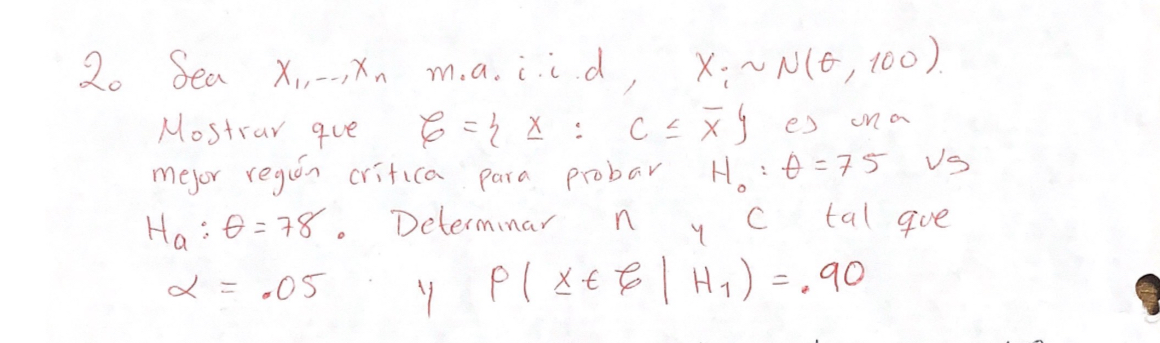 2. Sea X₁,--,Xₙ m.a. i.i.d, Xᵢ ~ N(θ, 100).
Mostrar que 𝒞 = { X : C ≤ X̄ } es una
mejor región crítica para probar H₀ : θ = 75 vs
Hₐ : θ = 78. Determinar n y C tal que
α = .05 y P( X ∈ 𝒞 | H₁) = .90